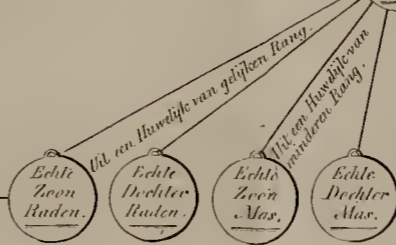 Uit een Huwelijk van gelijken Rang.
Uit een Huwelijk van
minderen Rang.
Echte
Zoon
Raden.
Echte
Dochter
Raden.
Echte
Zoon
Mas.
Echte
Dochter
Mas.